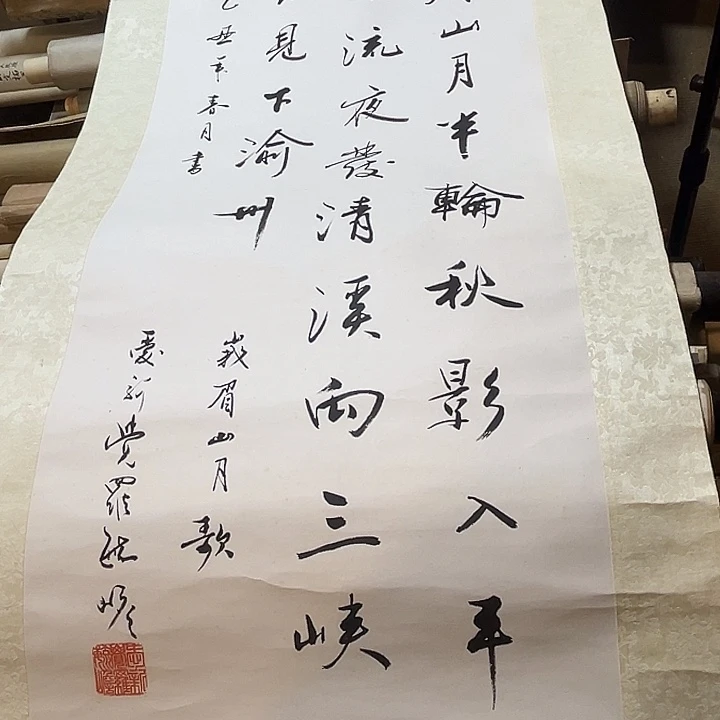 山月半輪秋影入平
流夜發清溪向三峽
見下渝州
峩眉山月歌
丑年春月書
愛新覺羅毓嶦